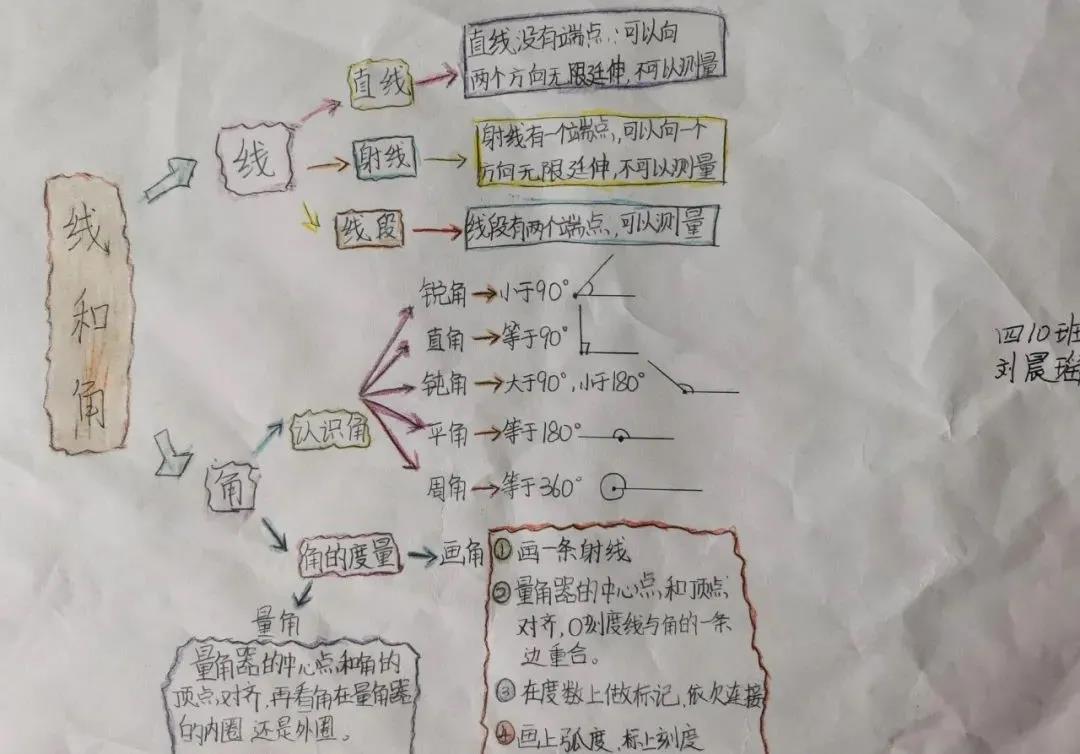 线和角
线
直线
直线没有端点,可以向
两个方向无限延伸,不可以测量
射线
射线有一个端点,可以向一个
方向无限延伸,不可以测量
线段
线段有两个端点,可以测量
角
认识角
锐角→小于90°
直角→等于90°
钝角→大于90°,小于180°
平角→等于180°
周角→等于360°
角的度量
画角
①画一条射线
②量角器的中心点和顶点
对齐,0刻度线与角的一条
边重合。
③在度数上做标记,依次连接
④画上弧度,标上刻度
量角
量角器的中心点和角的
顶点对齐,再看角在量角器
的内圈还是外圈。
四10班
刘晨瑶